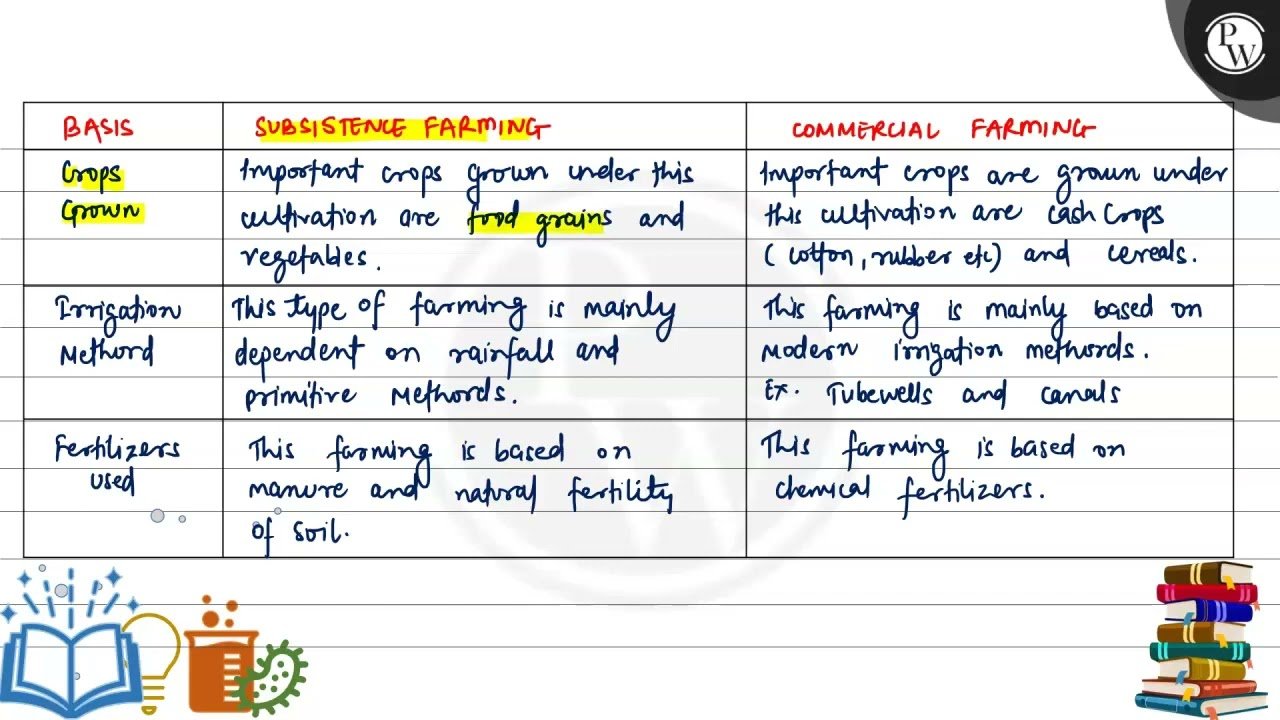 PW
BASIS SUBSISTENCE FARMING COMMERCIAL FARMING
Crops
Grown
Important crops grown under this
cultivation are food grains and
vegetables.
Important crops are grown under
this cultivation are cash crops
(cotton, rubber etc) and cereals.
Irrigation
Methord
This type of farming is mainly
dependent on rainfall and
primitive Methords.
This farming is mainly based on
Modern irrigation methords.
Ex. Tubewells and canals
Fertilizers
used
This farming is based on
manure and natural fertility
of soil.
This farming is based on
chemical fertilizers.